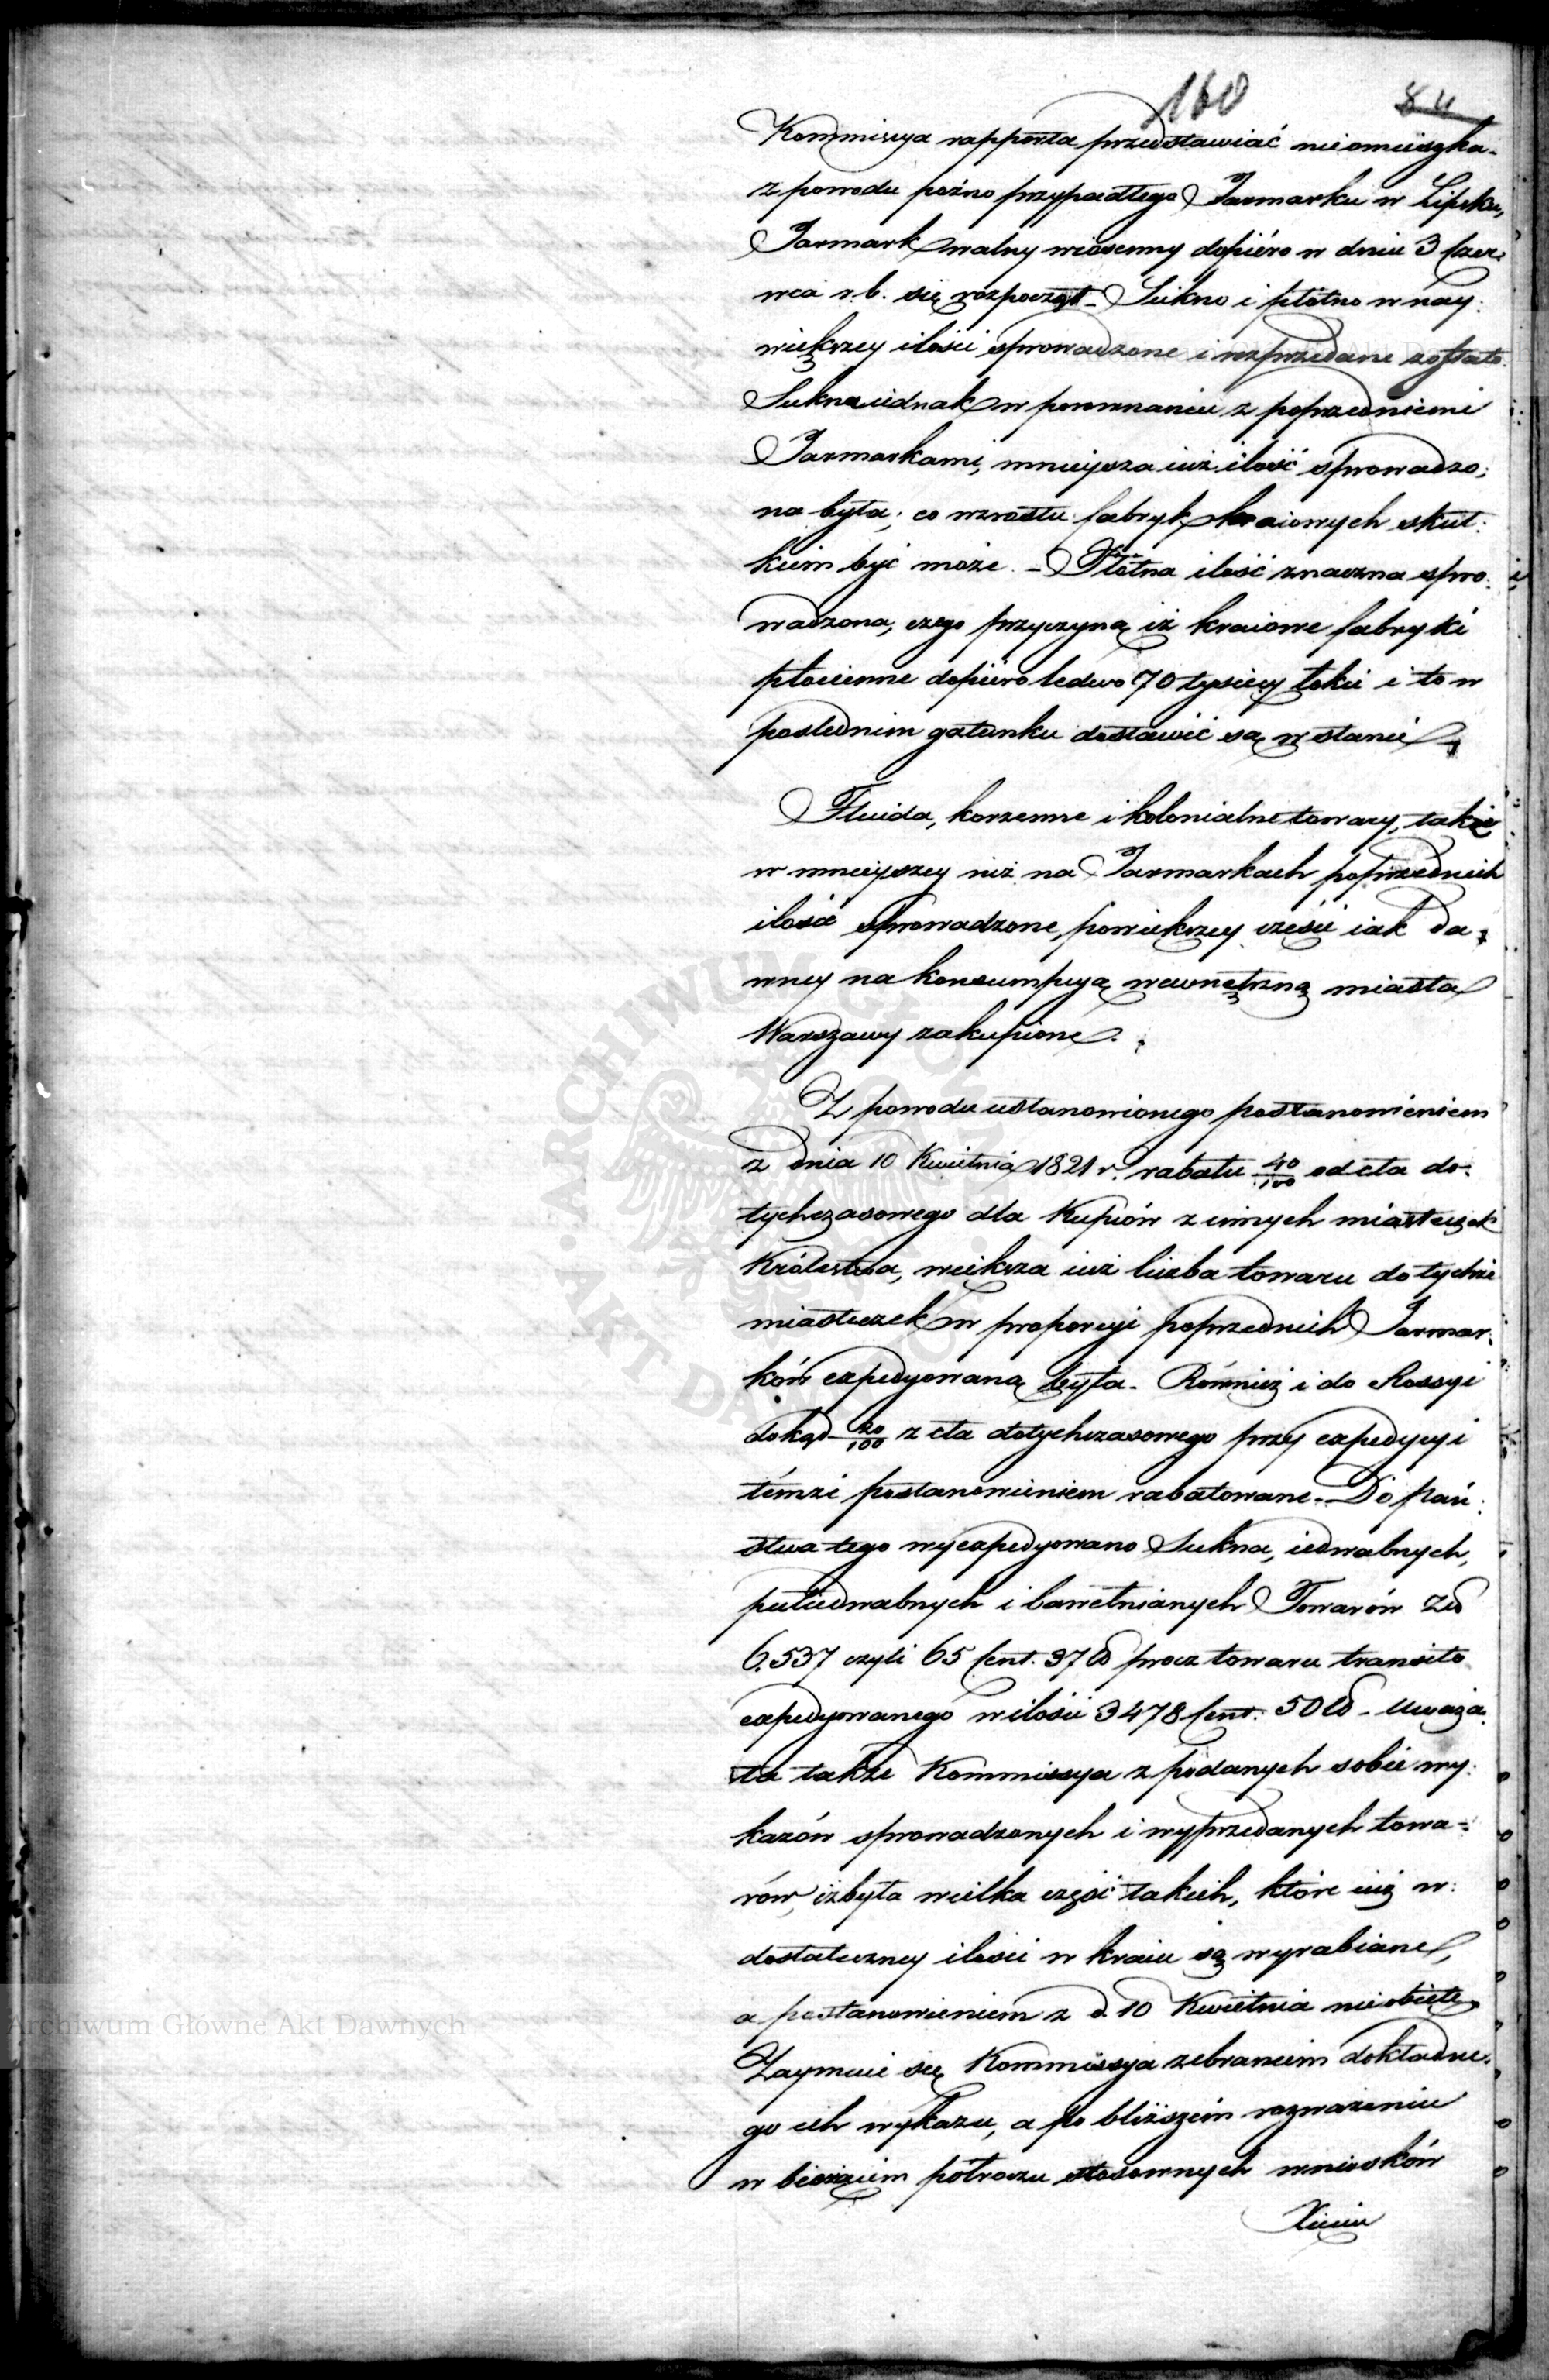 160 84
Kommissya rapporta przedstawiać nieomieszka.
z powodu poźno przypadłego Jarmarku w Lipsku,
Jarmark walny wiosenny dopiéro w dniu 3 Czer:
wca r.b. się rozpoczął. Sukno i płótno w nay:
większey ilości sprowadzone i rozprzedane zostało.
Sukna iednak w porownaniu z poprzedniemi
Jarmarkami, mnieysza iuż ilość sprowadzo:
na była; co wzrostu fabryk kraiowych skut:
kiem być może. - Płótna ilość znaczna spro:
wadzona, czego przyczyną iż kraiowe fabryki
płocienne dopiero ledwo 70 tysięcy łokci i to w
poslednim gatunku dostawić są w stanie.
Fluida, korzenne i kolonialne towary, także
w mnieyszey niż na Jarmarkach poprzednich
ilości sprowadzone, powiększey części iak da:
wney na konsumpcyą wewnętrzną miasta
Warszawy zakupione.
Z powodu ustanowionego postanowieniem
z dnia 10 Kwietnia 1821 r. rabatu 40/100 od cła do:
tychczasowego dla Kupców z innych miasteczek
Królestwa, większa iuż liczba towaru do tychże
miasteczek w proporcyi poprzednich Jarmar:
ków expedyowaną była. Również i do Rossyi
dokąd 20/100 z cła dotychczasowego przy expedycyi
témże postanowieniem rabatowane. Do Pań:
stwa tego wyexpedyowano Sukna, iedwabnych,
pułiedwabnych i bawełnianych Towarów
6.537 czyli 65 Cent. 37 ℔ procz towaru transito
expedyowanego w ilości 3478 Cent. 50 ℔ - Uważa:
ła także Kommissya z podanych sobie wy:
kazów sprowadzonych i wyprzedanych towa:
rów, iż była wielka część takich, które iuż w:
dostateczney ilości w kraiu są wyrabiane,
a postanowieniem z d. 10 Kwietnia nieobięte.
Zaymuie się Kommissya zebraniem dokładne:
go ich wykazu, a po bliższém rozważeniu
w bieżącém półroczu stosownych wniosków
Xięciu
ARCHIWUM GŁÓWNE AKT DAWNYCH
Archiwum Główne Akt Dawnych